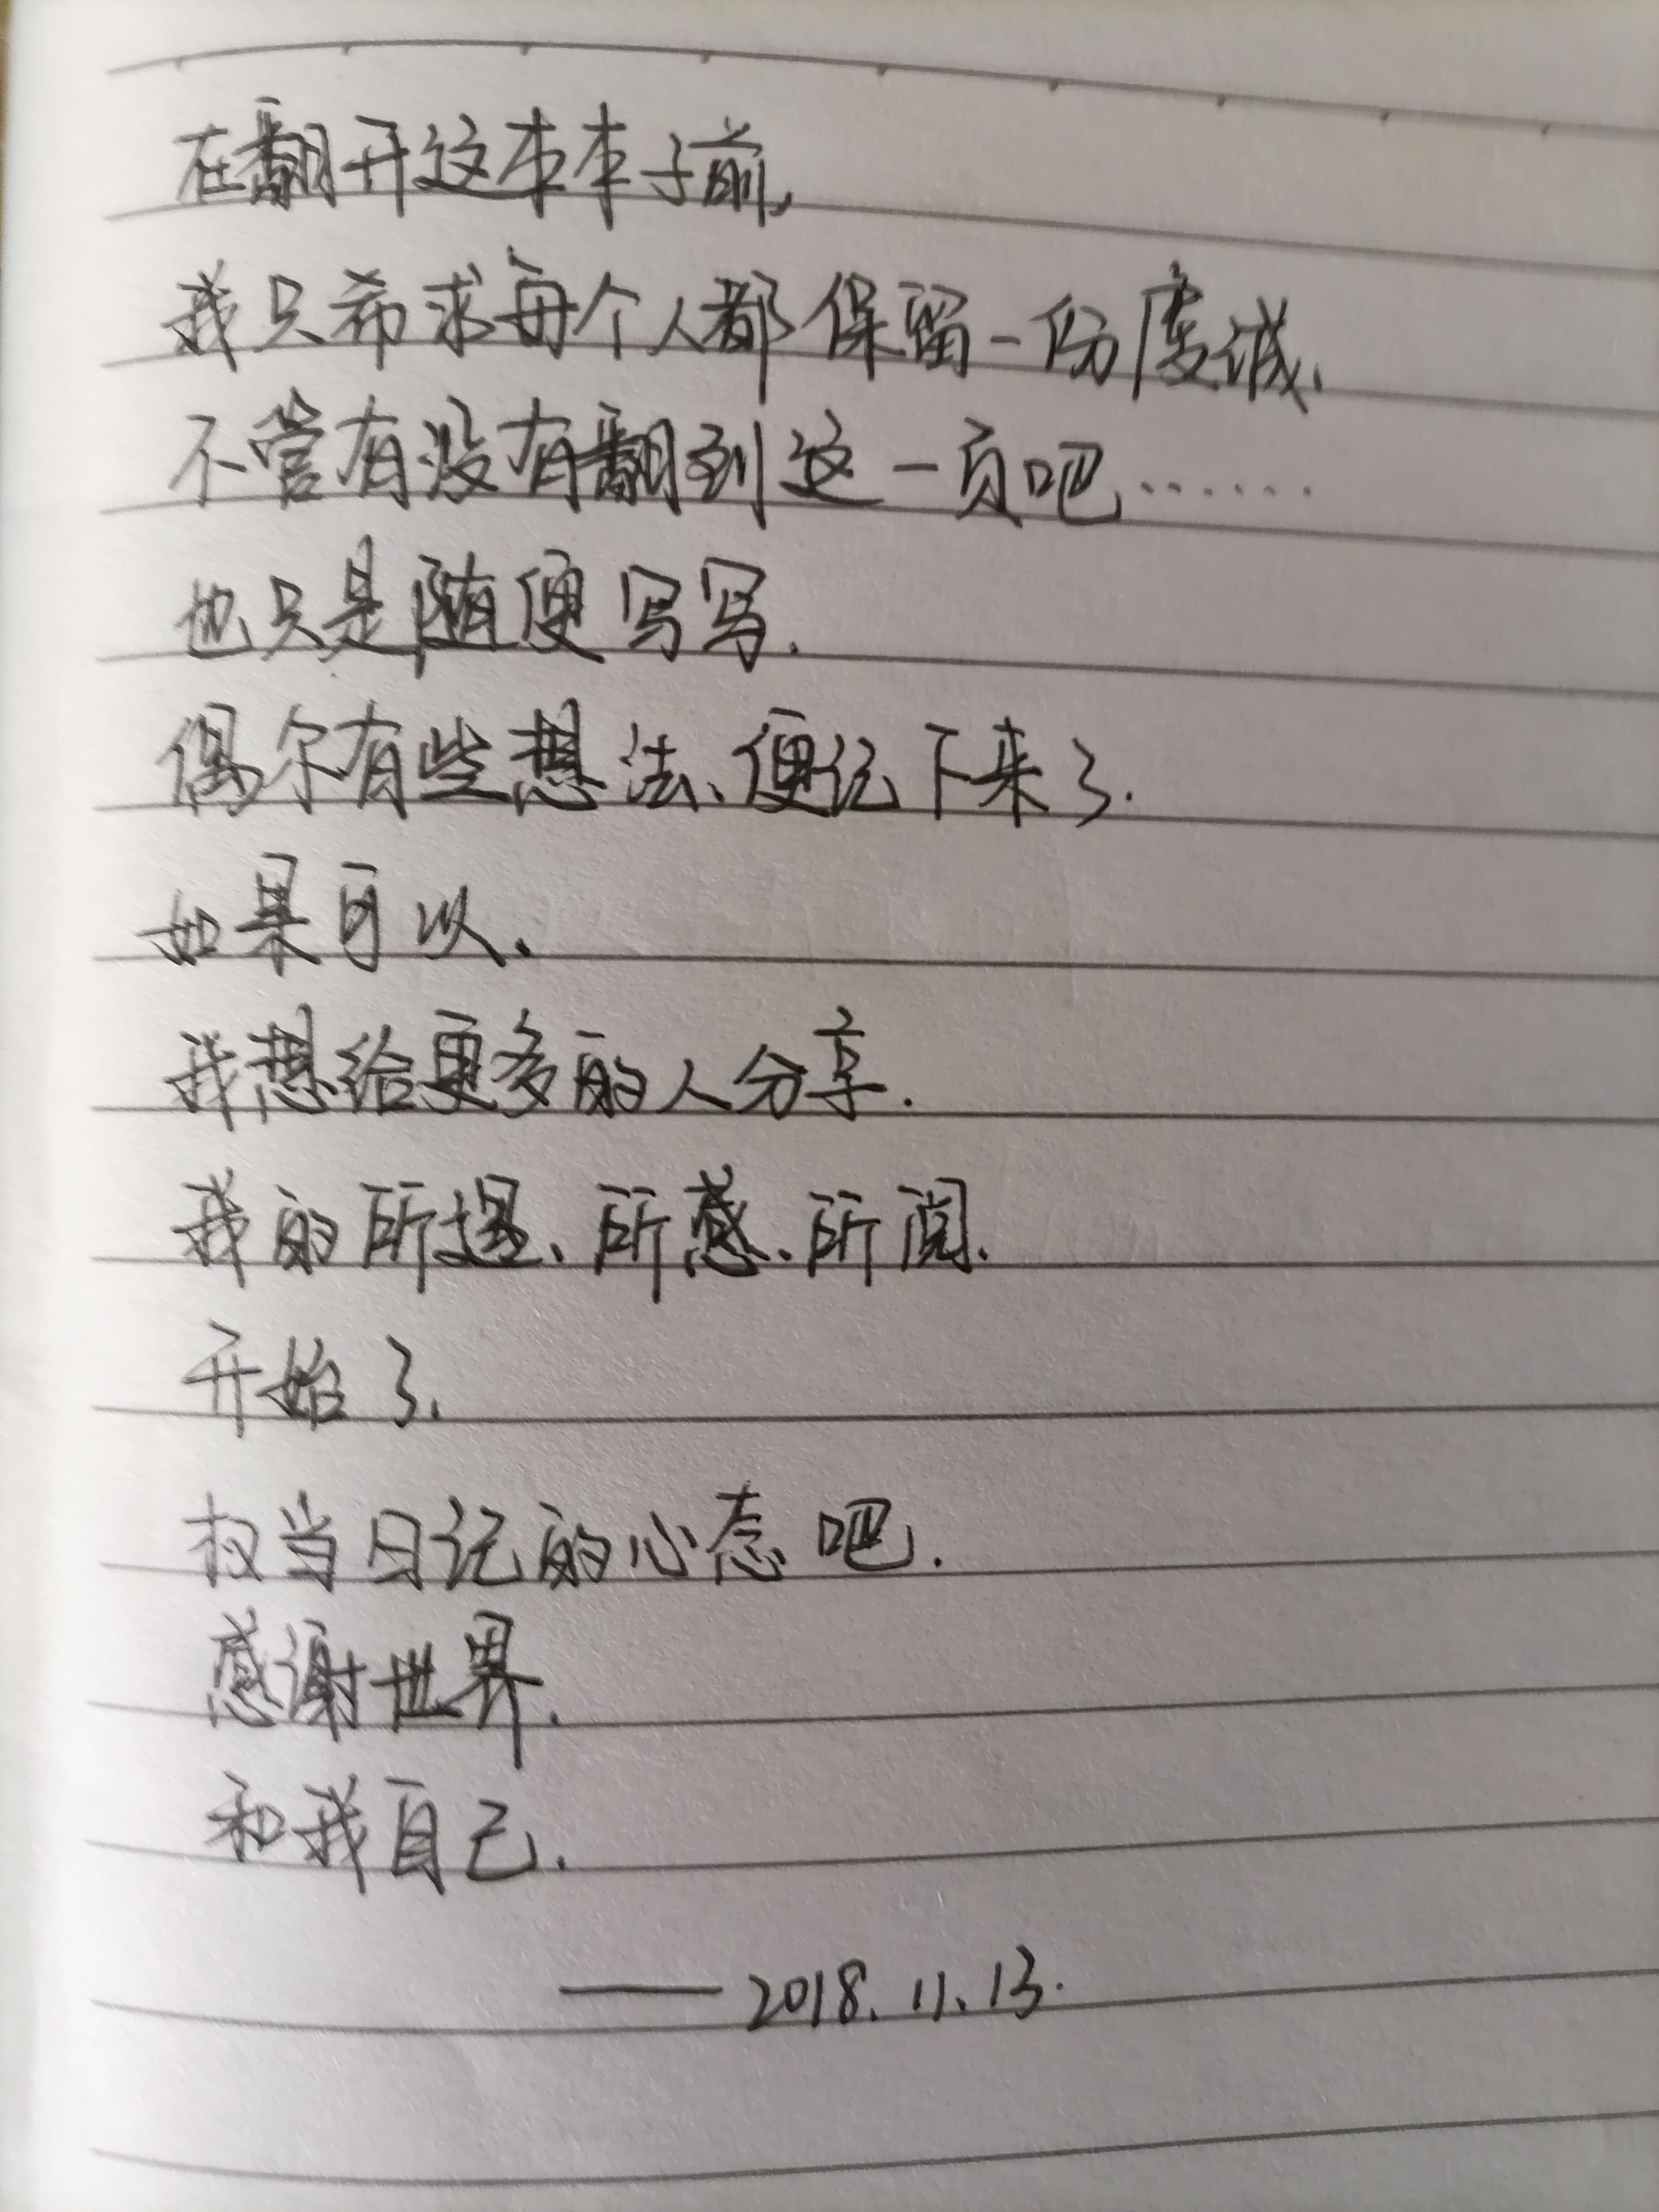 在翻开这本本子前,
我只希求每个人都保留一份虔诚、
不管有没有翻到这一页吧……
也只是随便写写.
偶尔有些想法、便记下来了.
如果可以、
我想给更多的人分享.
我的所遇、所感、所阅.
开始了.
权当日记的心态吧.
感谢世界.
和我自己.
——2018.11.13.